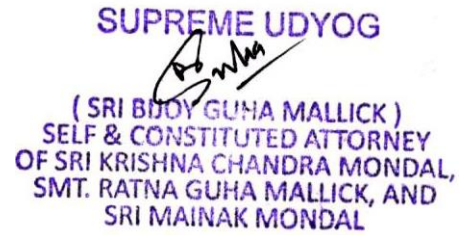 SUPREME UDYOG
( SRI BIJOY GUHA MALLICK )
SELF & CONSTITUTED ATTORNEY
OF SRI KRISHNA CHANDRA MONDAL,
SMT. RATNA GUHA MALLICK, AND
SRI MAINAK MONDAL